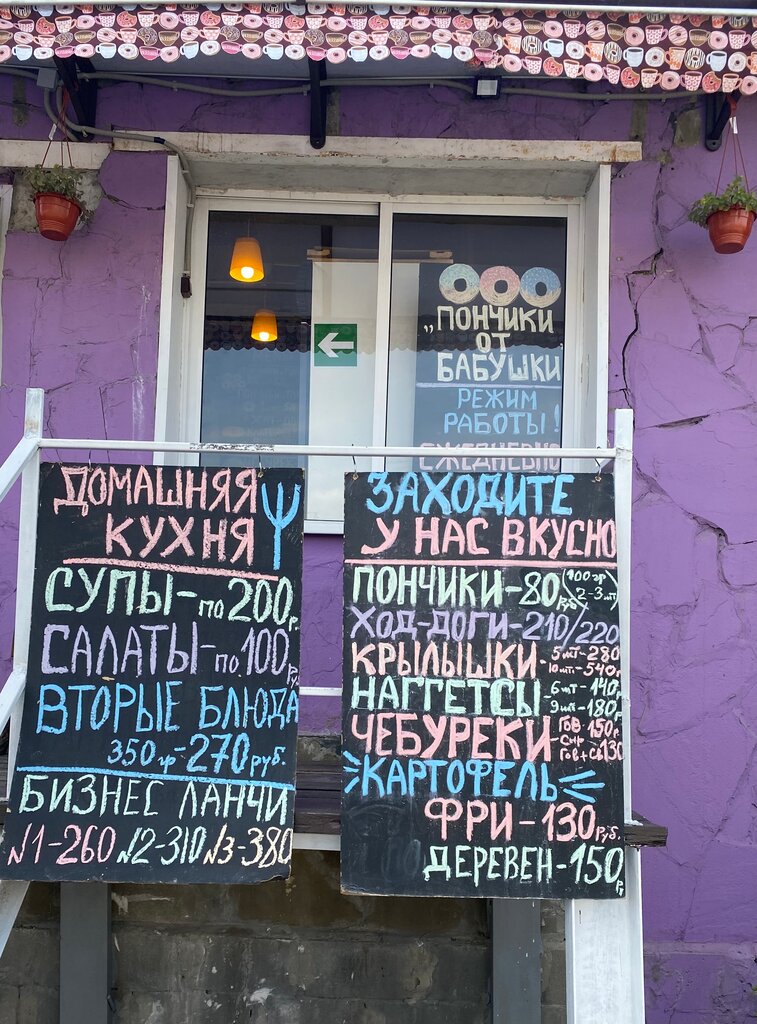 „ПОНЧИКИ
ОТ
БАБУШКИ
РЕЖИМ
РАБОТЫ!
ЕЖЕДНЕВНО
ДОМАШНЯЯ
КУХНЯ
СУПЫ-по 200р.
САЛАТЫ-по 100 Ру
ВТОРЫЕ БЛЮДА
350 гр-270 руб.
БИЗНЕС ЛАНЧИ
№1-260 №2-310 №3-380
ЗАХОДИТЕ
У НАС ВКУСНО
ПОНЧИКИ-80 руб (100 гр 2-3 шт)
ХОД-ДОГИ-210/220
КРЫЛЫШКИ- 5 шт-280
10 шт.-540р
НАГГЕТСЫ- 6 шт-140р
9 шт-180р
ЧЕБУРЕКИ- ГОВ-150р
-СЫР-
ГОВ+СЫ 130
КАРТОФЕЛЬ
ФРИ-130 руб.
ДЕРЕВЕН-150 Р